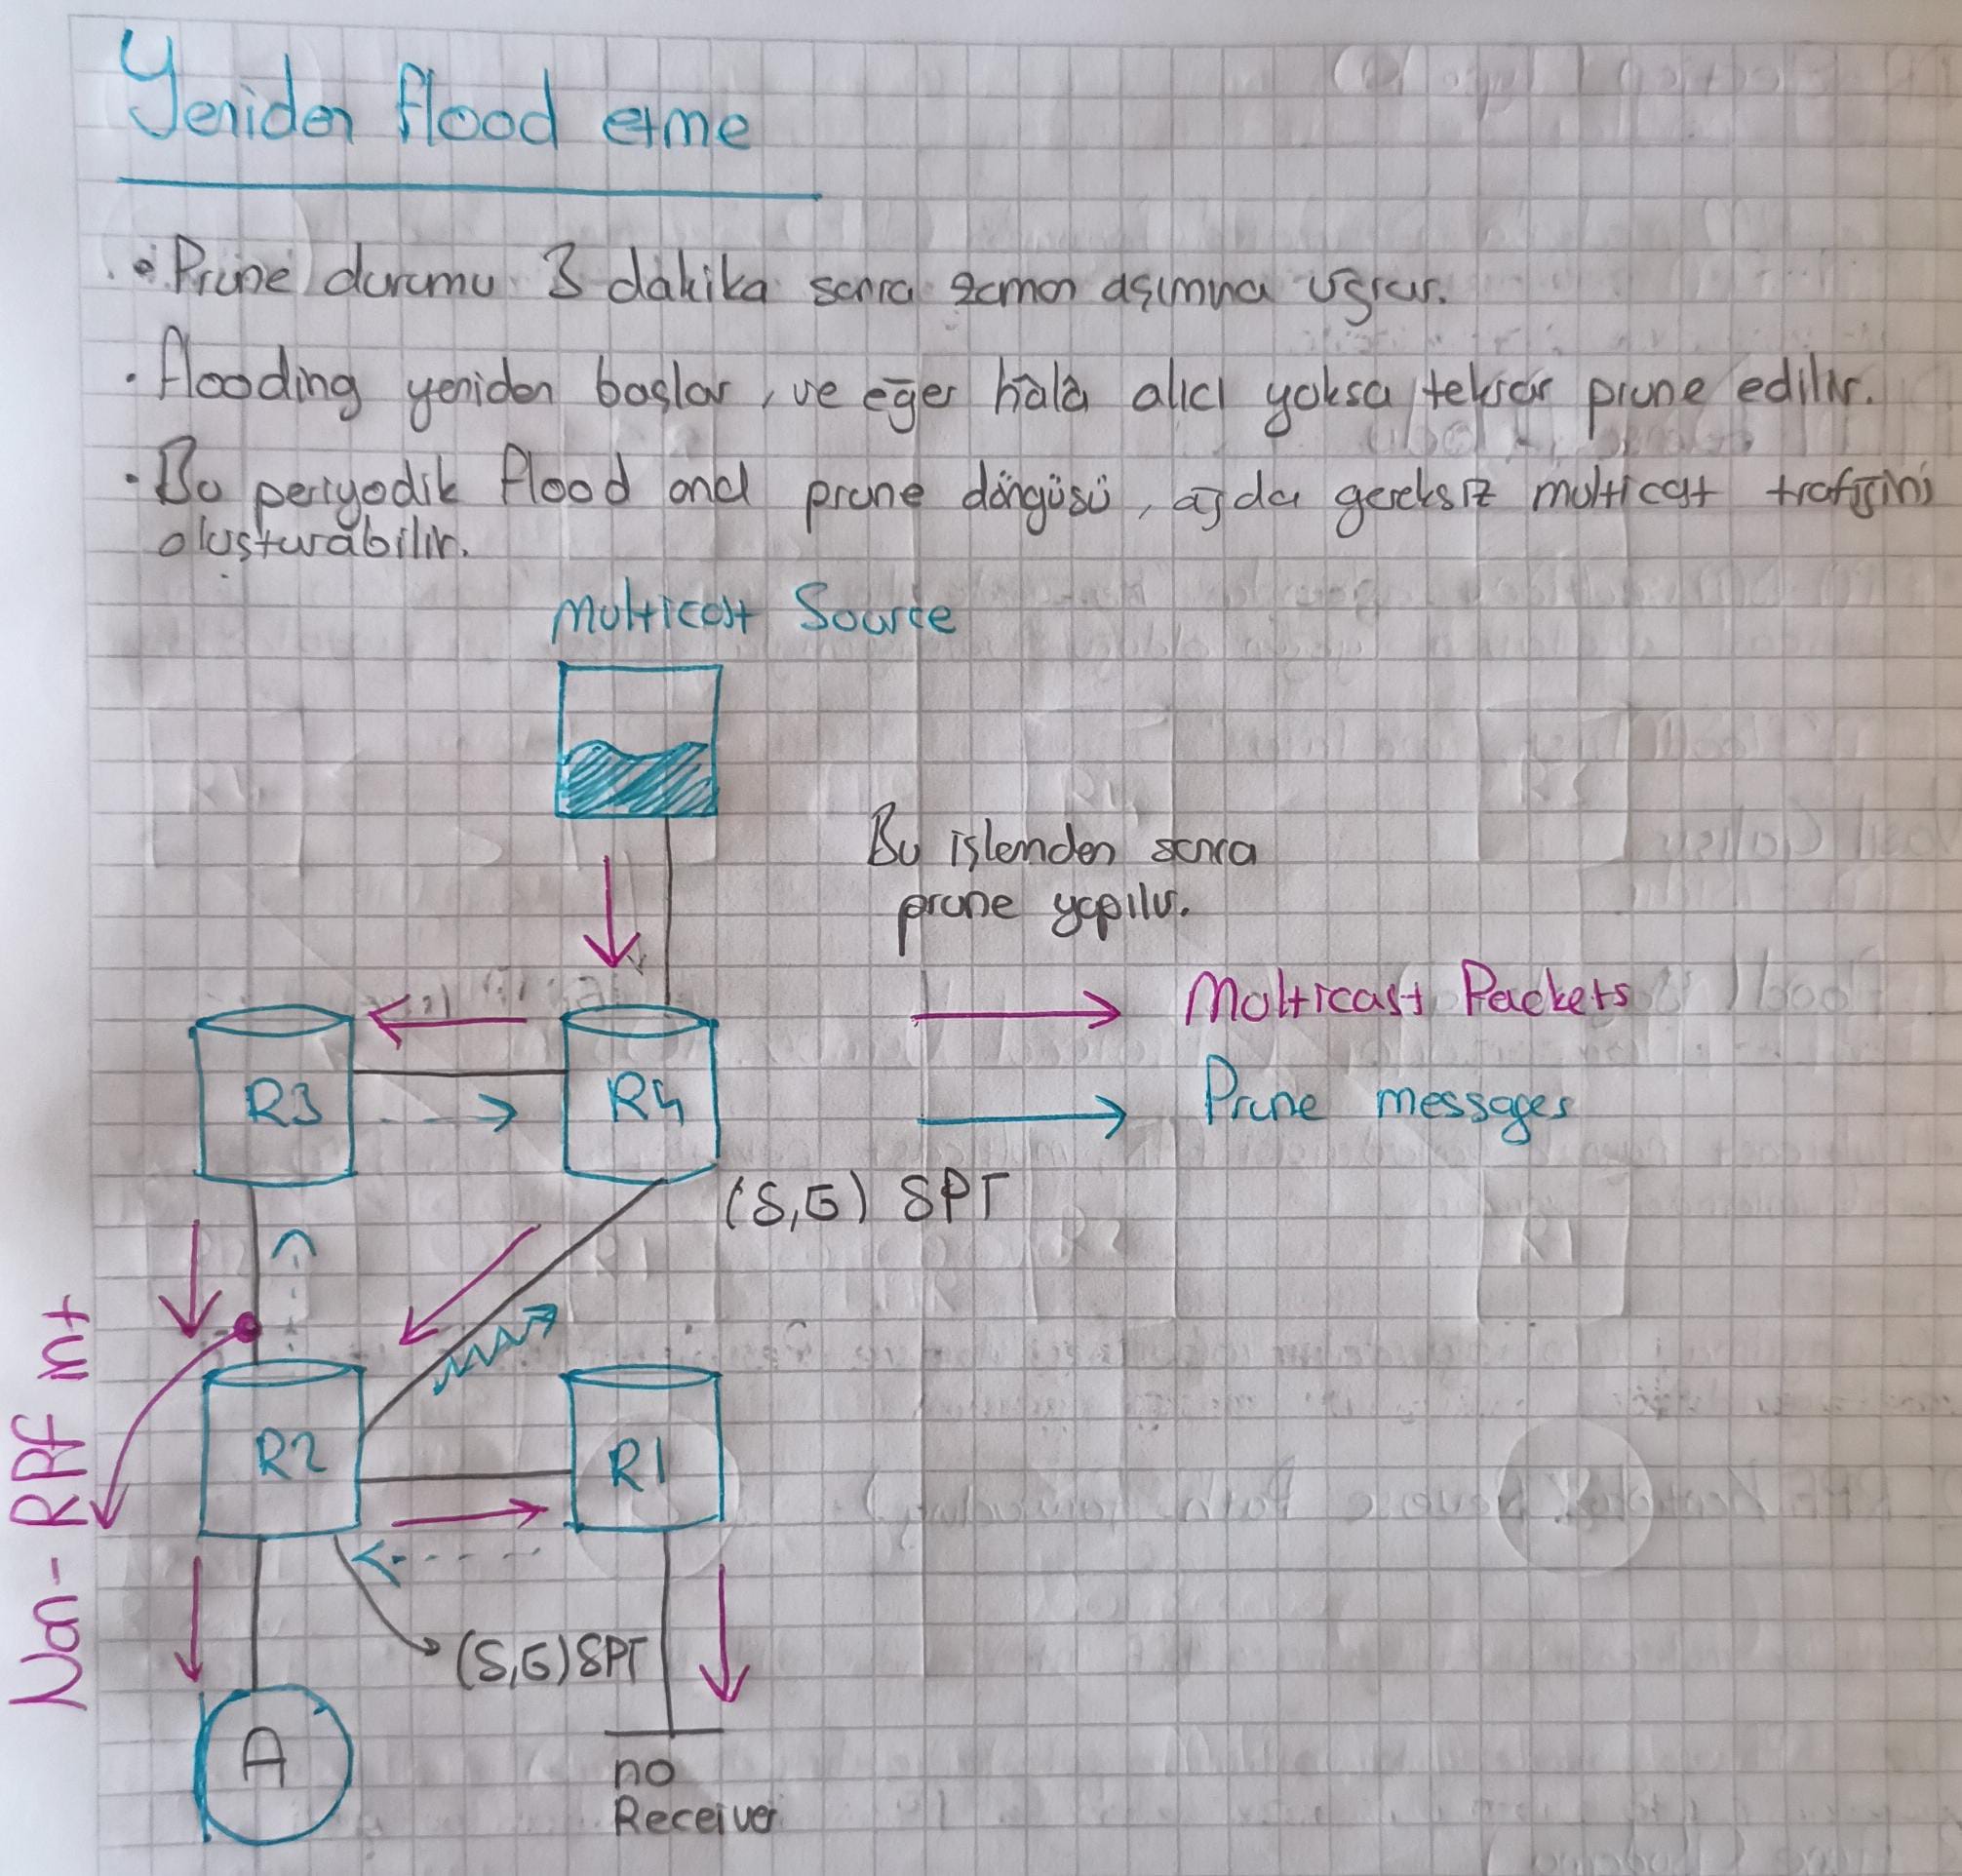 Yeniden flood etme
• Prune durumu 3 dakika sonra zaman aşımına uğrar.
• flooding yeniden başlar, ve eğer hâlâ alıcı yoksa tekrar prune edilir.
• Bu periyodik flood and prune döngüsü, ağda gereksiz multicast trafiğini
oluşturabilir.
Multicast Source
Bu işlemden sonra
prune yapılır.
Multicast Packets
R3
R4
Prune messages
(S,G) SPT
Non-RPF int
R2
R1
(S,G) SPT
A
no
Receiver